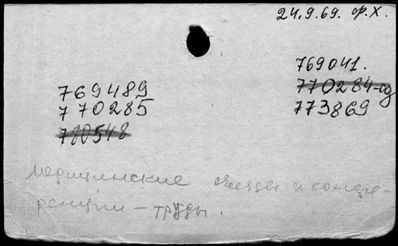 24.9.69. Ф.Х.
769041.
770284-од
773869
769489
770285
780548
медицинские съезды и конфе-
ренции - труды.